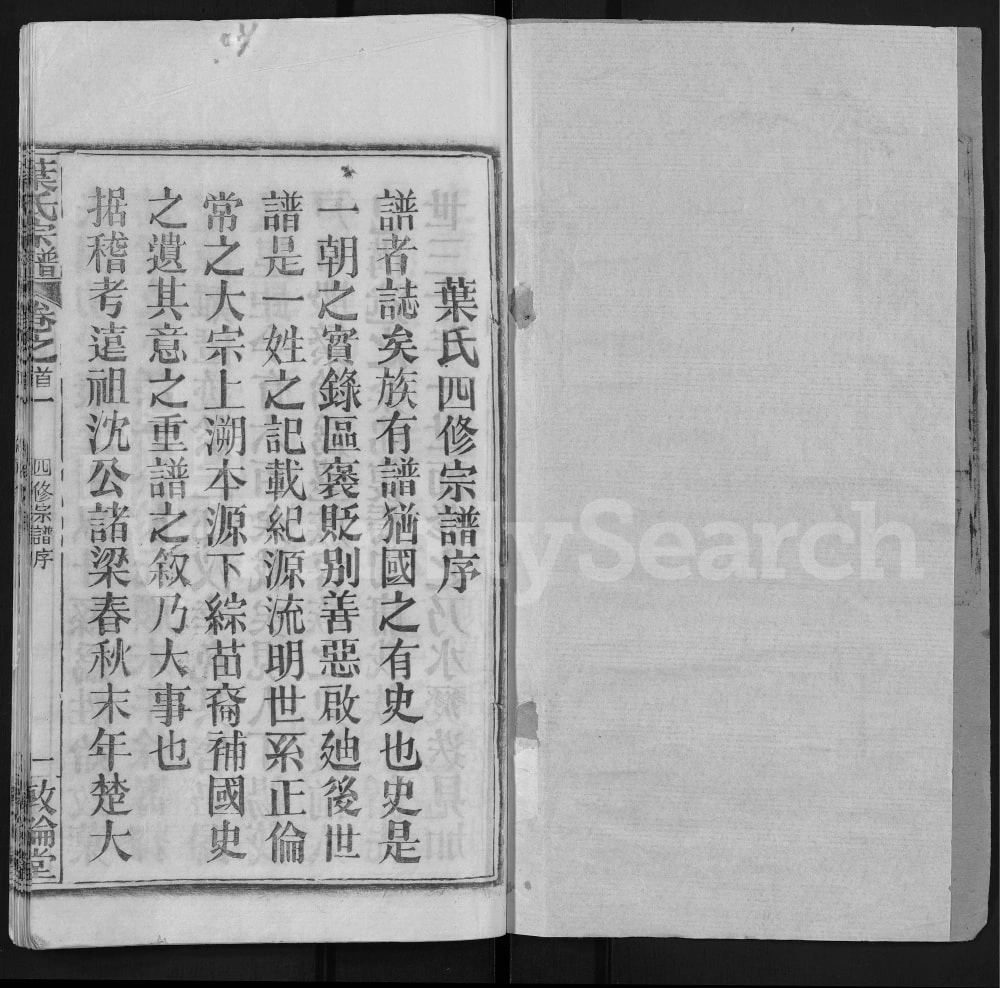 葉氏四修宗譜序
譜者誌矣族有譜猶國之有史也史是
一朝之實錄區褒貶別善惡啟廸後世
譜是一姓之記載紀源流明世系正倫
常之大宗上溯本源下綜苗裔補國史
之遺其意之重譜之敘乃大事也
据稽考遠祖沈公諸梁春秋末年楚大
葉氏宗譜
卷之首
四修宗譜序
一
敦倫堂
ySearch